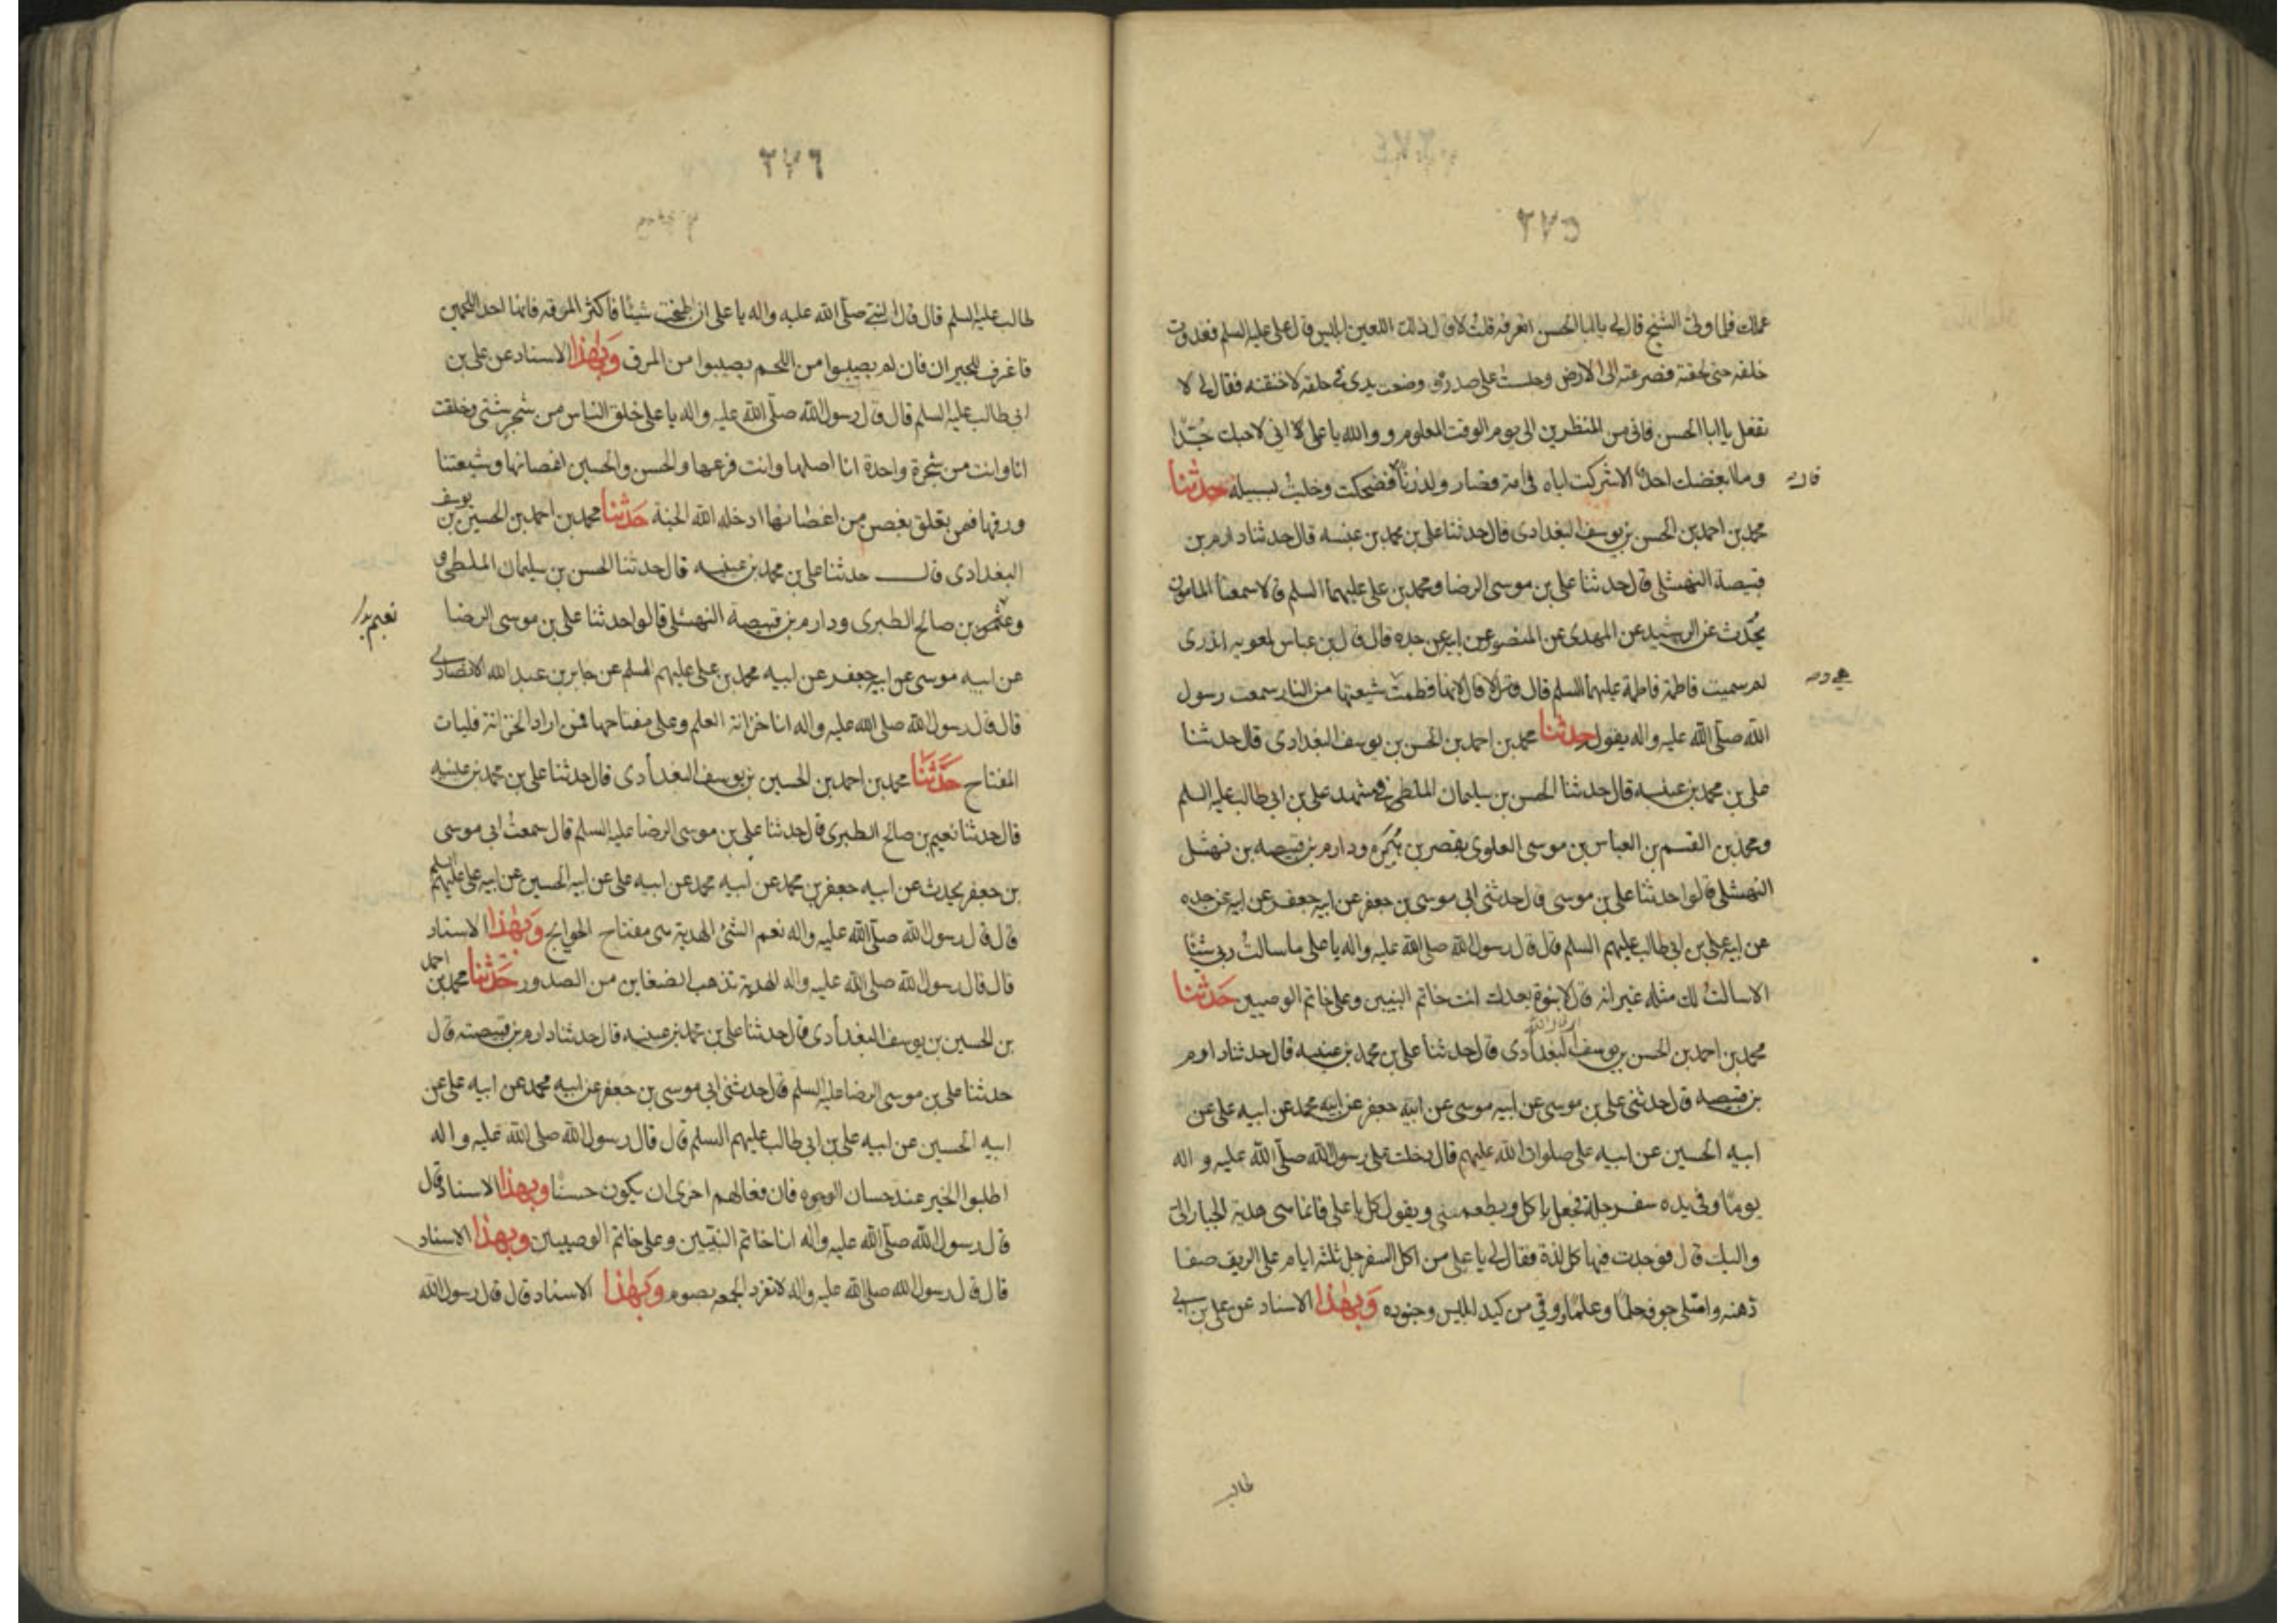 ٢٧٥
عملك فلما ولى الشيخ قال لي يا ابا الحسن اتعرفه قلت لا قال ذلك اللعين ابليس قال علي عليه السلم فعدوت
خلفه حتى لحقته فصرعته الى الارض وجلست على صدره ووضعت يدي في حلقه لاخنقه فقال لي لا
تفعل يا ابا الحسن فاني من المنظرين الى يوم الوقت المعلوم ووالله يا علي اني لاحبك جدا
وما ابغضك احد الا شركت اباه في امه فصار ولد زنا فضحكت وخليت سبيله حدثنا
قال
محمد بن احمد بن الحسن بن يوسف البغدادي قال حدثنا علي بن محمد بن عنبسه قال حدثنا دارم بن
قبيصة النهشلي قال حدثنا علي بن موسى الرضا ومحمد بن علي عليهما السلم قالا سمعنا المامون
يحدث عن الرشيد عن المهدي عن المنصور عن ابيه عن جده قال قال ابن عباس لمعويه اتدري
لم سميت فاطمة فاطمة عليها السلم قال لا قال لانها فطمت شيعتها من النار سمعت رسول
الله صلى الله عليه واله يقول حدثنا محمد بن احمد بن الحسن بن يوسف البغدادي قال حدثنا
علي بن محمد بن عنبسه قال حدثنا الحسن بن سليمان الملطي في مشهد علي بن ابي طالب عليه السلم
ومحمد بن القسم بن العباس بن موسى العلوي بقصر بن هبيره ودارم بن قبيصه بن نهشل
النهشلي قالوا حدثنا علي بن موسى قال حدثني ابي موسى بن جعفر عن ابيه جعفر عن ابيه عن جده
عن ابيه علي بن ابي طالب عليهم السلم قال قال رسول الله صلى الله عليه واله يا علي ما سالت ربي شيئا
الا سالت لك مثله غير انه قال لا نبوة بعدك انت خاتم النبيين وعلي خاتم الوصيين حدثنا
محمد بن احمد بن الحسن بن يوسف البغدادي قال حدثنا علي بن محمد بن عنبسه قال حدثنا دارم
بن قبيصه قال حدثني علي بن موسى عن ابيه موسى عن ابيه جعفر عن ابيه محمد عن ابيه علي عن
ابيه الحسين عن ابيه علي صلوات الله عليهم قال دخلت على رسول الله صلى الله عليه واله
يوما وفي يده سفرجلة فجعل ياكل ويطعمني ويقول كل يا علي فانها هدية الجبار الي
واليك قال فوجدت فيها كل لذة فقال لي يا علي من اكل السفرجل ثلثه ايام على الريق صفا
ذهنه وامتلى جوفه حلما وعلما ووقي من كيد ابليس وجنوده وبهذا الاسناد عن علي بن ابي
طالب
٢٧٦
طالب عليه السلم قال قال النبي صلى الله عليه واله يا علي اذا طبخت شيئا فاكثر المرقه فانها احد اللحمين
فاغرف للجيران فان لم يصيبوا من اللحم يصيبوا من المرق وبهذا الاسناد عن علي بن
ابي طالب عليه السلم قال قال رسول الله صلى الله عليه واله يا علي خلق الناس من شجر شتى وخلقت
انا وانت من شجرة واحدة انا اصلها وانت فرعها والحسن والحسين اغصانها وشيعتنا
ورقها فمن تعلق بغصن من اغصانها ادخله الله الجنة حدثنا محمد بن احمد بن الحسين بن يوسف
البغدادي قال حدثنا علي بن محمد بن عنبسه قال حدثنا الحسن بن سليمان الملطي
و بن صالح الطبري ودارم بن قبيصة النهشلي قالوا حدثنا علي بن موسى الرضا
نعيم
عن ابيه موسى عن ابيه جعفر عن ابيه محمد بن علي عليهم السلم عن جابر بن عبد الله الانصاري
قال قال رسول الله صلى الله عليه واله انا خزانة العلم وعلي مفتاحها فمن اراد الخزانة فليات
المفتاح حدثنا محمد بن احمد بن الحسين بن يوسف البغدادي قال حدثنا علي بن محمد بن عنبسه
قال حدثنا نعيم بن صالح الطبري قال حدثنا علي بن موسى الرضا عليه السلم قال سمعت ابي موسى
بن جعفر يحدث عن ابيه جعفر بن محمد عن ابيه محمد عن ابيه علي عن ابيه الحسين عن ابيه علي عليهم السلم
قال قال رسول الله صلى الله عليه واله نعم الشئ الهدية مفتاح الحوايج وبهذا الاسناد
قال قال رسول الله صلى الله عليه واله الهدية تذهب الضغاين من الصدور حدثنا محمد بن احمد
بن الحسين بن يوسف البغدادي قال حدثنا علي بن محمد بن عنبسه قال حدثنا دارم بن قبيصته قال
حدثنا علي بن موسى الرضا عليه السلم قال حدثني ابي موسى بن جعفر عن ابيه محمد عن ابيه علي عن
ابيه الحسين عن ابيه علي بن ابي طالب عليهم السلم قال قال رسول الله صلى الله عليه واله
اطلبوا الخير عند حسان الوجوه فان فعالهم احرى ان يكون حسنا وبهذا الاسناد قال
قال رسول الله صلى الله عليه واله انا خاتم النبيين وعلي خاتم الوصيين وبهذا الاسناد
قال قال رسول الله صلى الله عليه واله لا تفرد الجمعه بصوم وبهذا الاسناد قال قال رسول الله